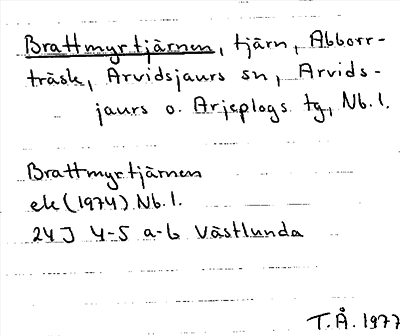 Brattmyrtjärnen, tjärn, Abborr-
träsk, Arvidsjaurs sn, Arvids-
jaurs o. Arjeplogs tg, Nb.l.
Brattmyrtjärnen
ek (1974) Nb.l.
24J 4-5 a-b Västlunda
T.Å. 1977